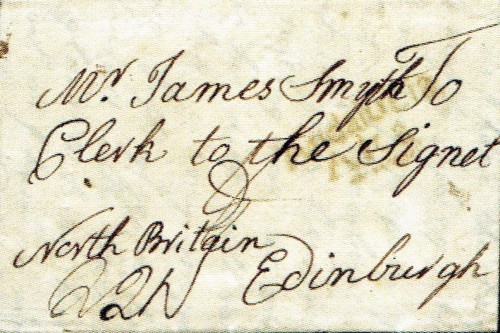 To
Mr. James Smyth
Clerk to the Signet
Edinburgh
North Britain